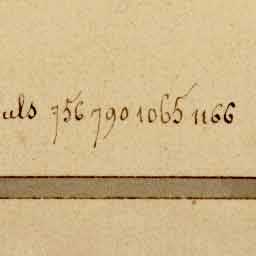 uls 756 790 1065 1166